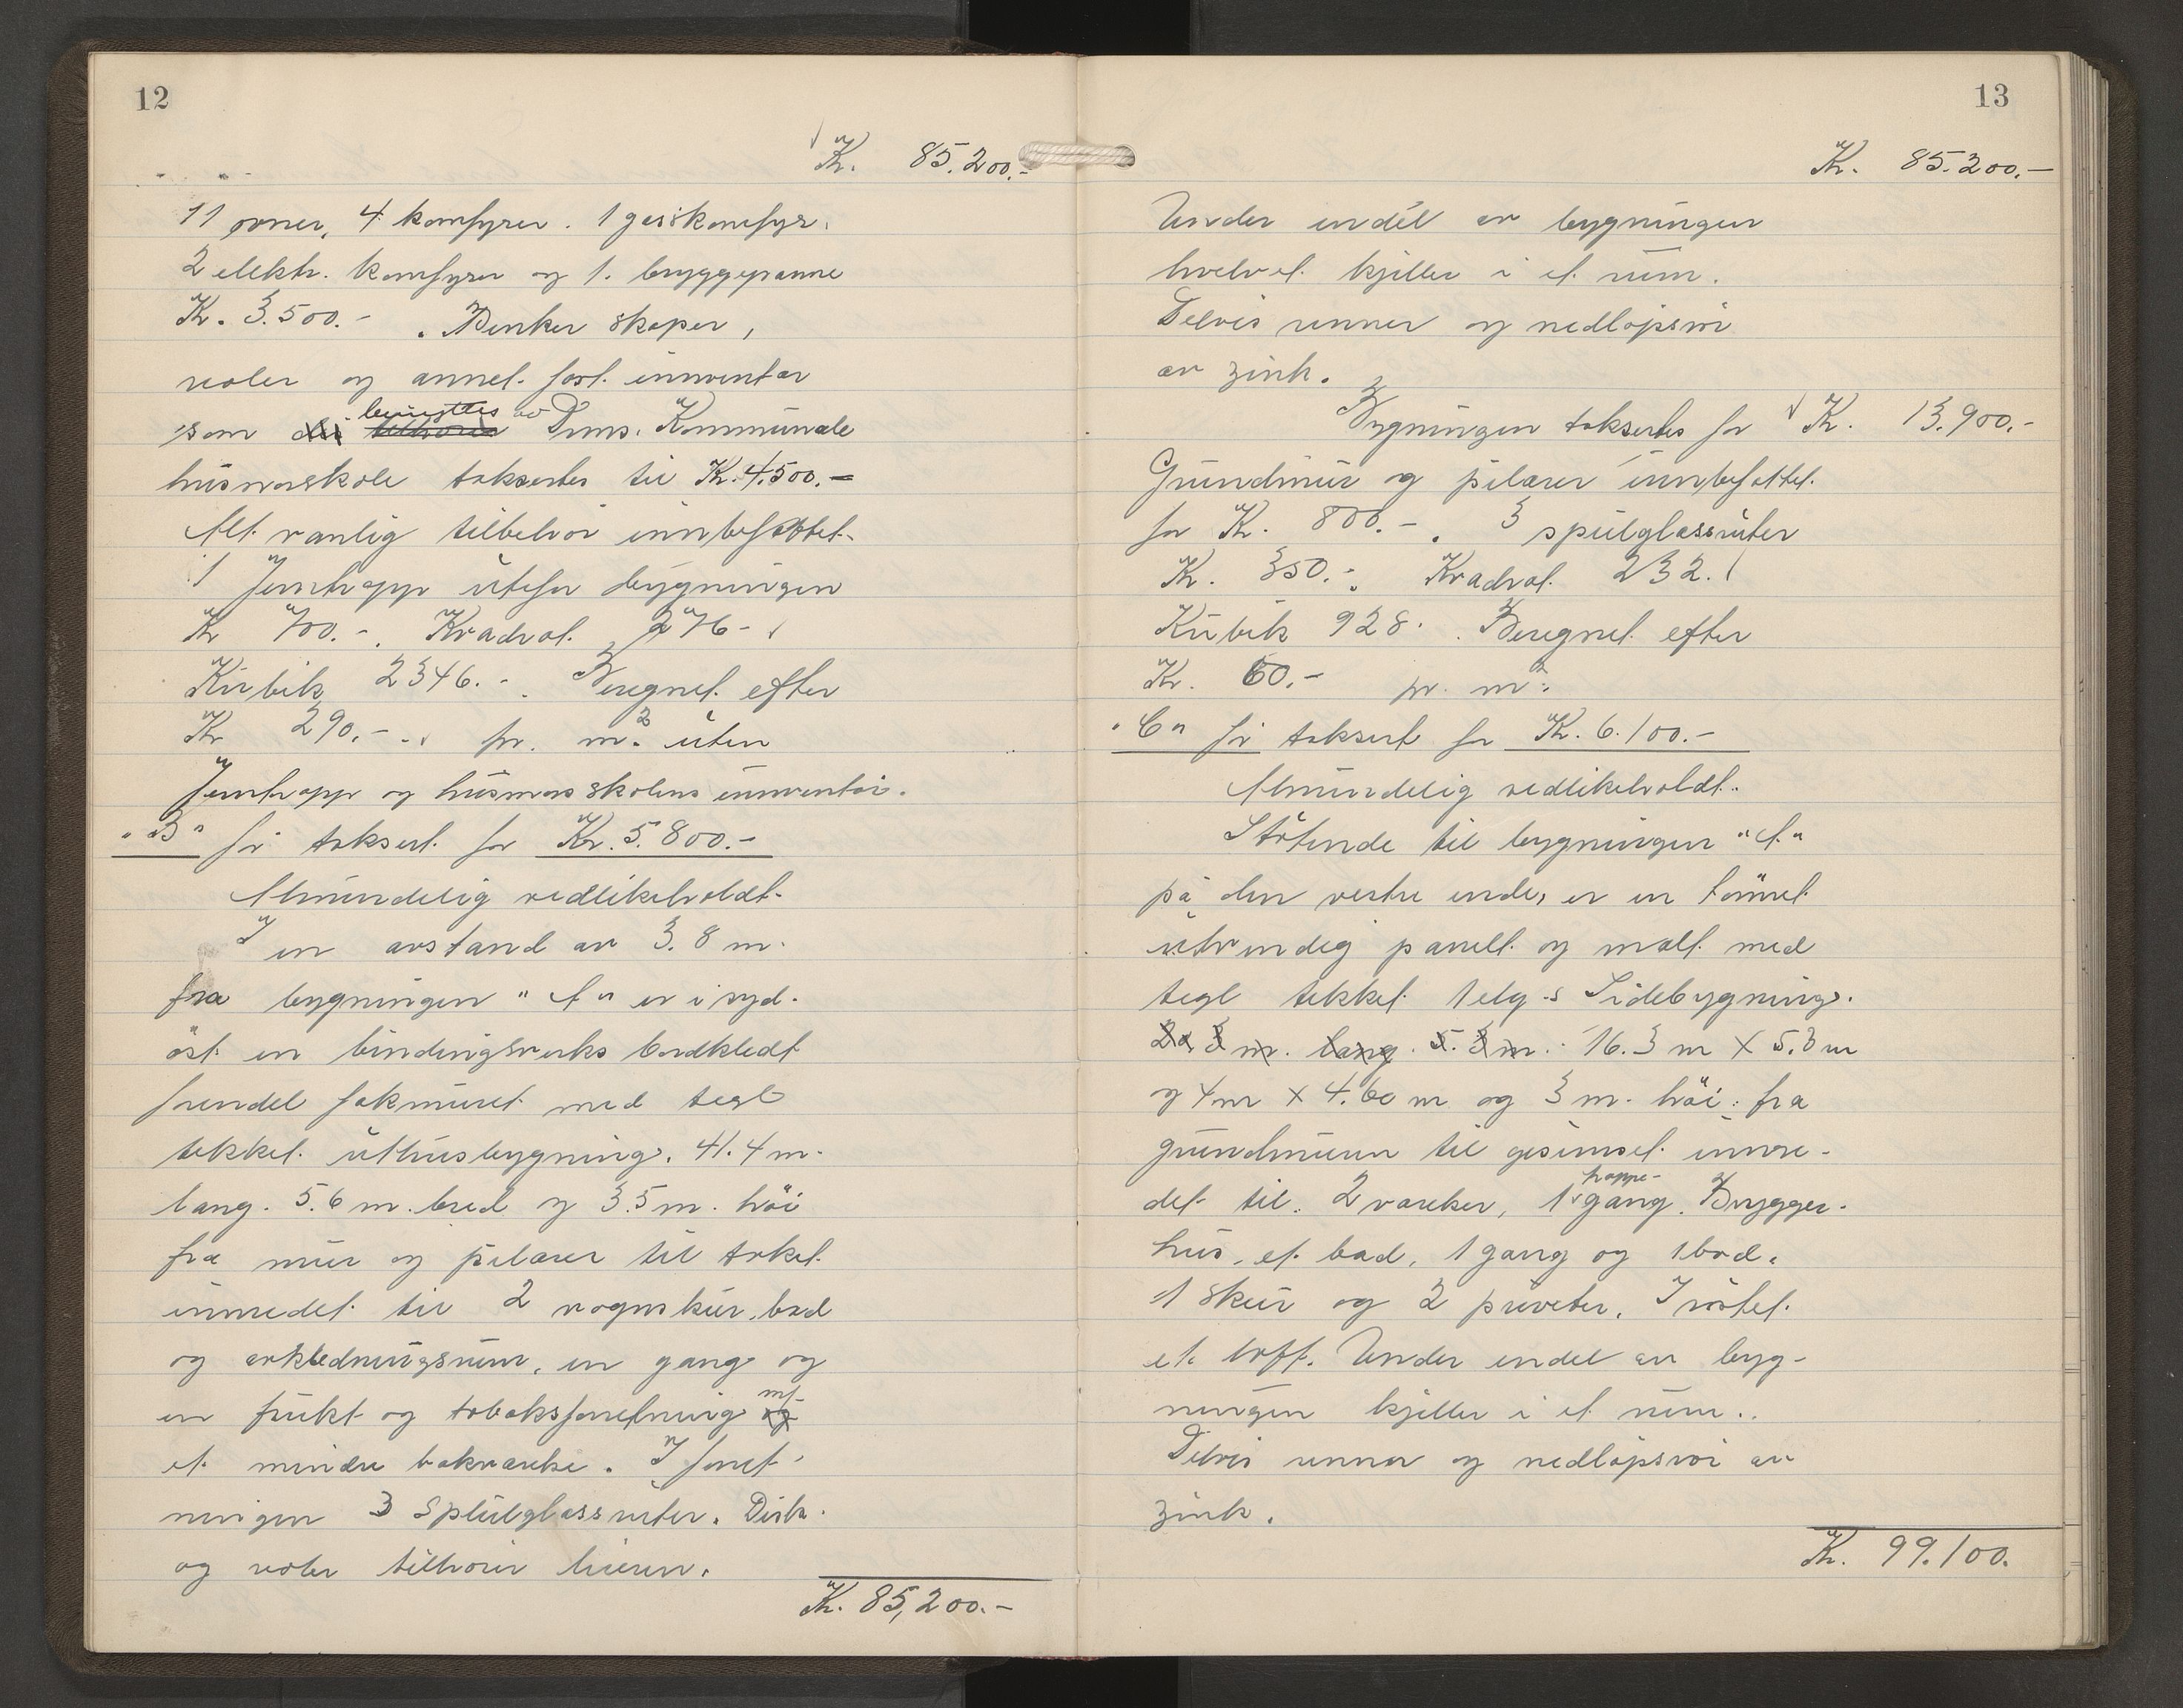 12
Kr. 85.200.-
11 ovner, 4 komfyrer. 1 gasskomfyr.
2 elektr. komfyrer og 1. bryggepanne
Kr. 3.500.- . Benker skaper,
reoler og annet fast innventar
benyttes av
som Drms. Kommunale
husmorskole takseres til Kr. 4.500.-
Alt vanlig tilbehör innbefattet.
1 Jerntrapp utefor bygningen
Kr 700.- . Kvadrat. 276-
Kubik 2346. - . Beregnet efter
Kr 290.- . pr. m² uten
Jerntrapp og husmorsskolens innventar.
"B" før taksert for Kr. 5.800.-
Almindelig vedlikeholdt.
I en avstand av 3.8 m.
fra bygningen "A" er i syd-
öst en bindingsverks bordkledt
forendel fakmuret med tegl
tekket uthusbygning. 41.4 m.
lang. 5.6 m. bred og 3.5 m. höi
fra mur og pilarer til taket
innredet til 2 vognskur, bod
og avkledningsrum, en gang og
mt
en frukt og tobaksforretning
et mindre bakværelse. I foret-
ningen 3 Speilglassruter. Disk.
og reoler tilhörer leieren.
Kr. 85,200.-
13
Kr. 85.200.-
Under endel av bygningen
hvelvet kjeller i et rum.
Delvis renner og nedlöpsrör
av zink.
Bygningen takseres for Kr. 13.900.-
Grundmur og pilarer innbefattet
for Kr. 800.- . 3 speilglassruter
Kr. 350.- . Kvadrat. 232.
Kubik 928. . Beregnet efter
Kr. 60.- pr. m²:
"C" før taksert for Kr. 6.100.-
Almindelig vedlikeholdt.
Stötende til bygningen "A"
på den vestre ende, er en tömret
utvendig panelt og malt med
tegl tekket 1 etg-s Sidebygning.
16.3 m x 5.3 m
og 4 m x 4.60 m og 3 m. höi: fra
grundmuren til gesimset innre-
trappe-
det til. 2 værelser, 1 gang. Brygger-
hus, et bad, 1 gang og 1 bod.
1 Skur og 2 priveter. I röstet
et loft. Under endel av byg-
ningen kjeller i et rum..
Delvis renner og nedlöpsrör av
zink.
Kr. 99.100.